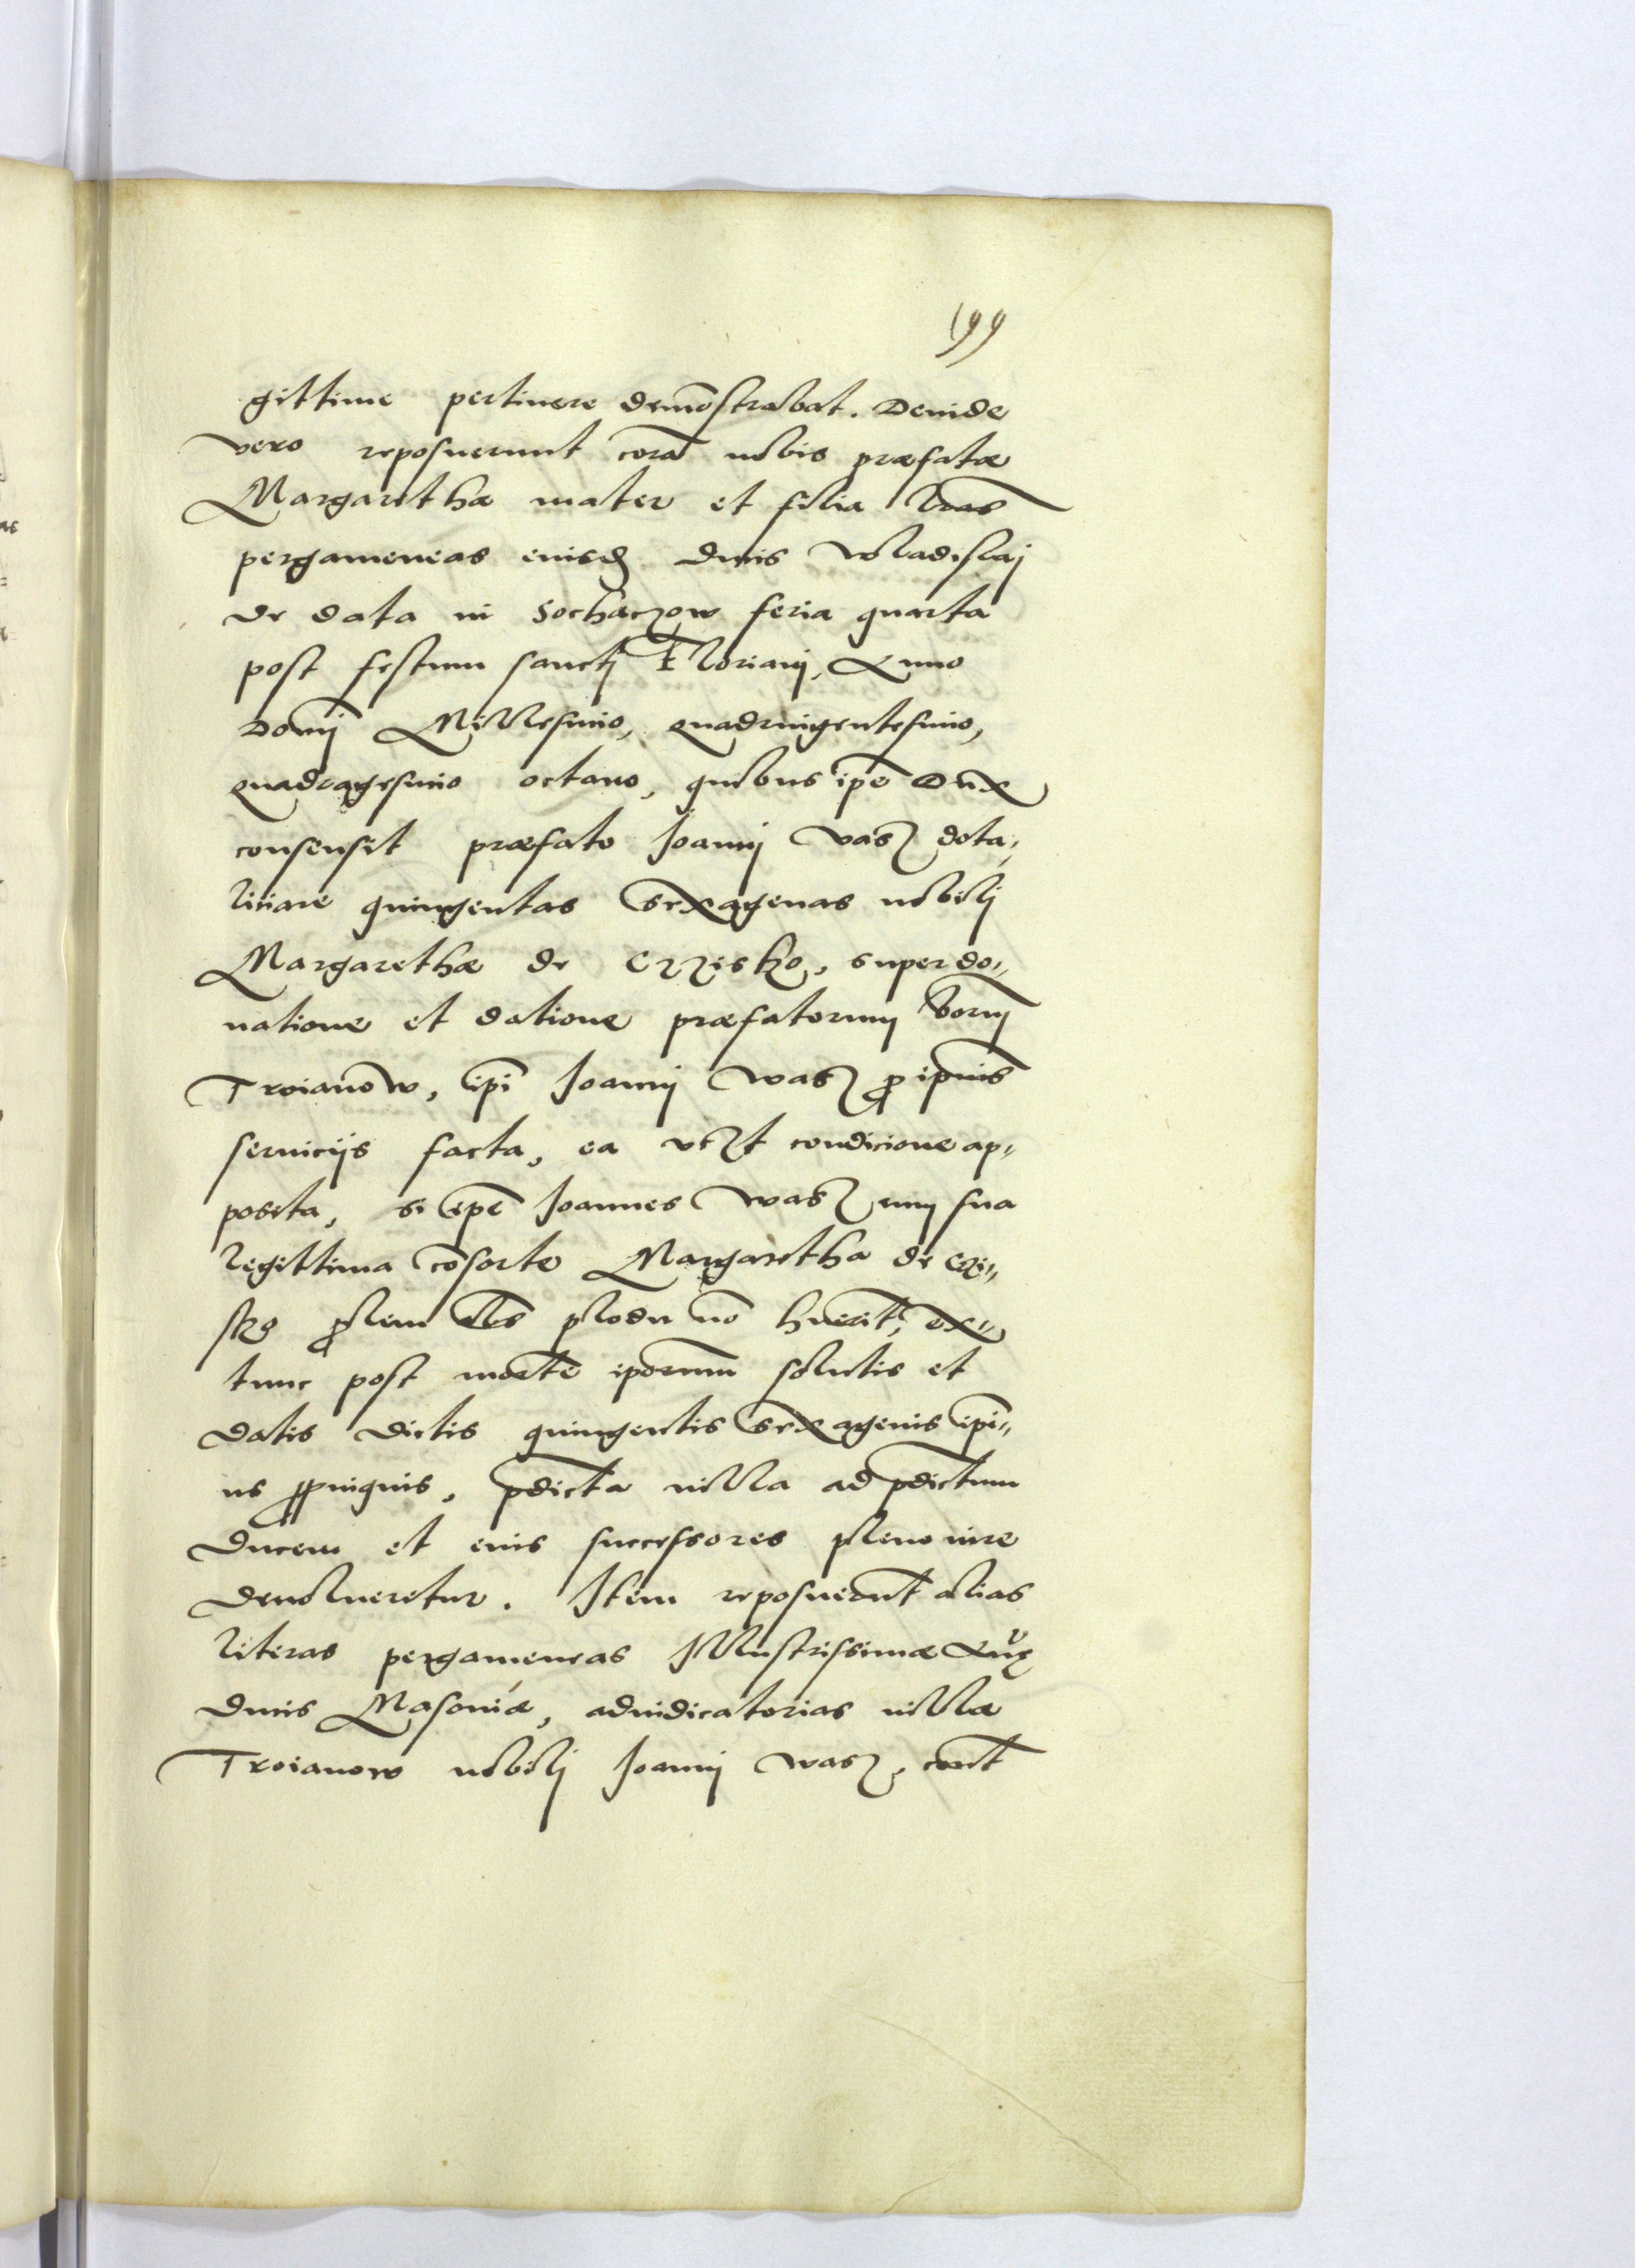 199
gittime pertinere demōstrabat. Deinde
vero reposuerunt corā nobis præfatæ
Margarethæ mater et filia lr̄as
pergameneas eiusdē ducis Wladislaj
de data in Sochaczow feria quarta
post festum sanctj Florianj, Anno
Dominj Millesimo, quadringentesimo,
quadragesimo octauo, quibus ip̄e Dux
consensit præfato Joannj Vasz dota-
litiare quingentas sexagenas nobilj
Margarethæ de Czzisko, super do-
natione et datione præfatorum bonorū
Troianow, ip̄i Joannj Wasz p̱ ip̄ius
seruicijs facta, ea vczt condicione ap-
posita, si ip̄e Joannes Wasz cum sua
legittima cōsorte Margaretha de Czi-
sko ꝓlem als plodu nō huerīt, ex-
tunc post mortē ip̄orum solutis et
datis dictis quingentis sexagenis ip̄i-
us ꝓpinquis, p̄dicta villa ad p̄dictum
Ducem et eius successores pleno iure
deuolueretur. Item reposuerūt alias
literas pergameneas Illustrissimæ Annæ
ducis Masouiæ, adiudicatorias villæ
Troianow nobilj Joannj Wasz, cont̄